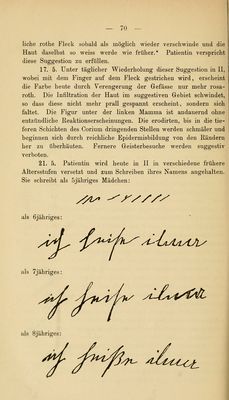 — 70 —
liche rothe Fleck sobald als möglich wieder verschwinde und die
Haut daselbst so weiss werde wie früher.“ Patientin verspricht
diese Suggestion zu erfüllen.
17. 5. Unter täglicher Wiederholung dieser Suggestion in II,
wobei mit dem Finger auf dem Fleck gestrichen wird, erscheint
die Farbe heute durch Verengerung der Gefässe nur mehr rosa-
roth. Die Infiltration der Haut im suggestiven Gebiet schwindet,
so dass diese nicht mehr prall gespannt erscheint, sondern sich
faltet. Die Figur unter der linken Mamma ist andauernd ohne
entzündliche Reaktionserscheinungen. Die erodirten, bis in die tie-
feren Schichten des Corium dringenden Stellen werden schmäler und
beginnen sich durch reichliche Epidermisbildung von den Rändern
her zu überhäuten. Fernere Geisterbesuche werden suggestiv
verboten.
21. 5. Patientin wird heute in II in verschiedene frühere
Altersstufen versetzt und zum Schreiben ihres Namens angehalten.
Sie schreibt als 5jähriges Mädchen:
als 6jähriges:
ich heiße ilmer
als 7jähriges:
ich heiße ilmer
als 8jähriges:
ich heiße ilmer